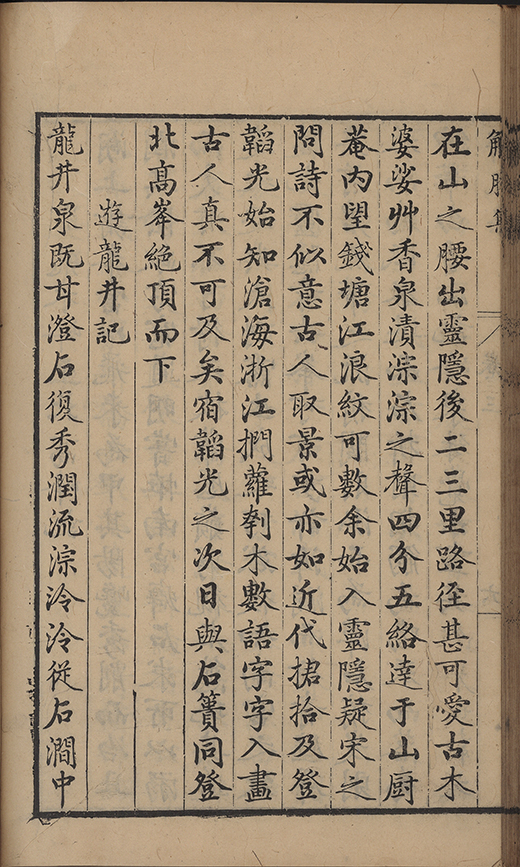 解脫集
在山之腰出靈隱後二三里路徑甚可愛古木
婆娑艸香泉漬淙淙之聲四分五絡達于山厨
菴内望錢塘江浪紋可數余始入靈隱疑宋之
問詩不似意古人取景或亦如近代捃拾及登
韜光始知滄海浙江捫蘿刳木數語字字入畫
古人真不可及矣宿韜光之次日與石簣同登
北高峯絶頂而下
遊龍井記
龍井泉既甘澄石復秀潤流淙泠泠從石澗中